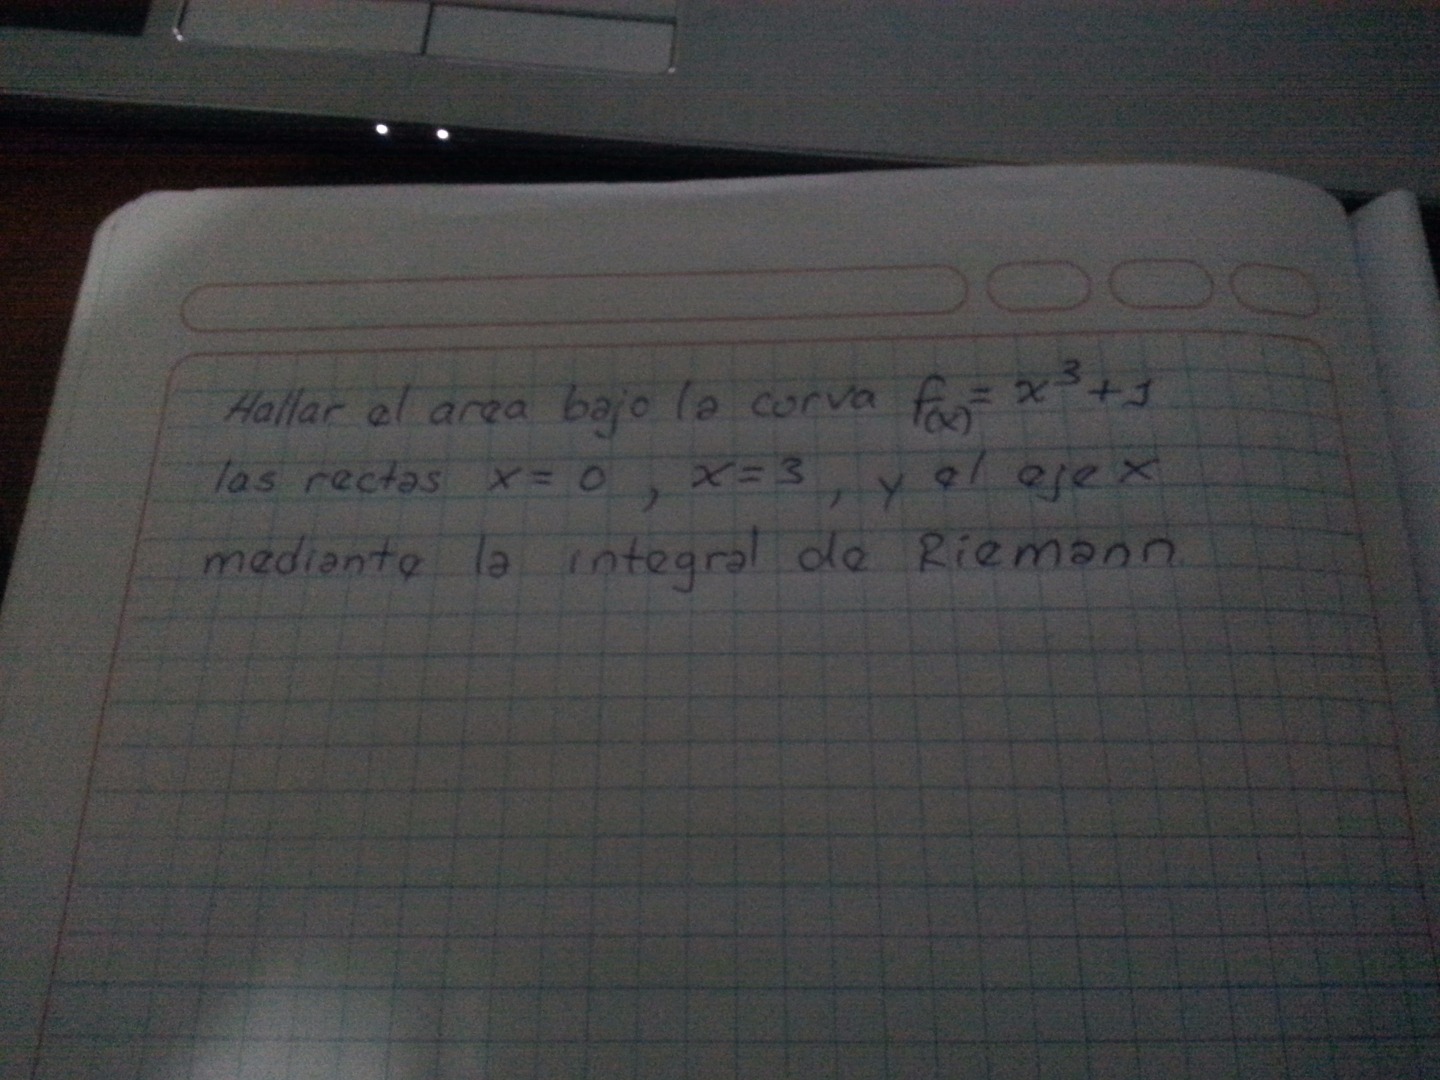 Hallar el area bajo la curva f(x) = x³ + 1
las rectas x = 0 , x = 3 , y el eje x
mediante la integral de Riemann